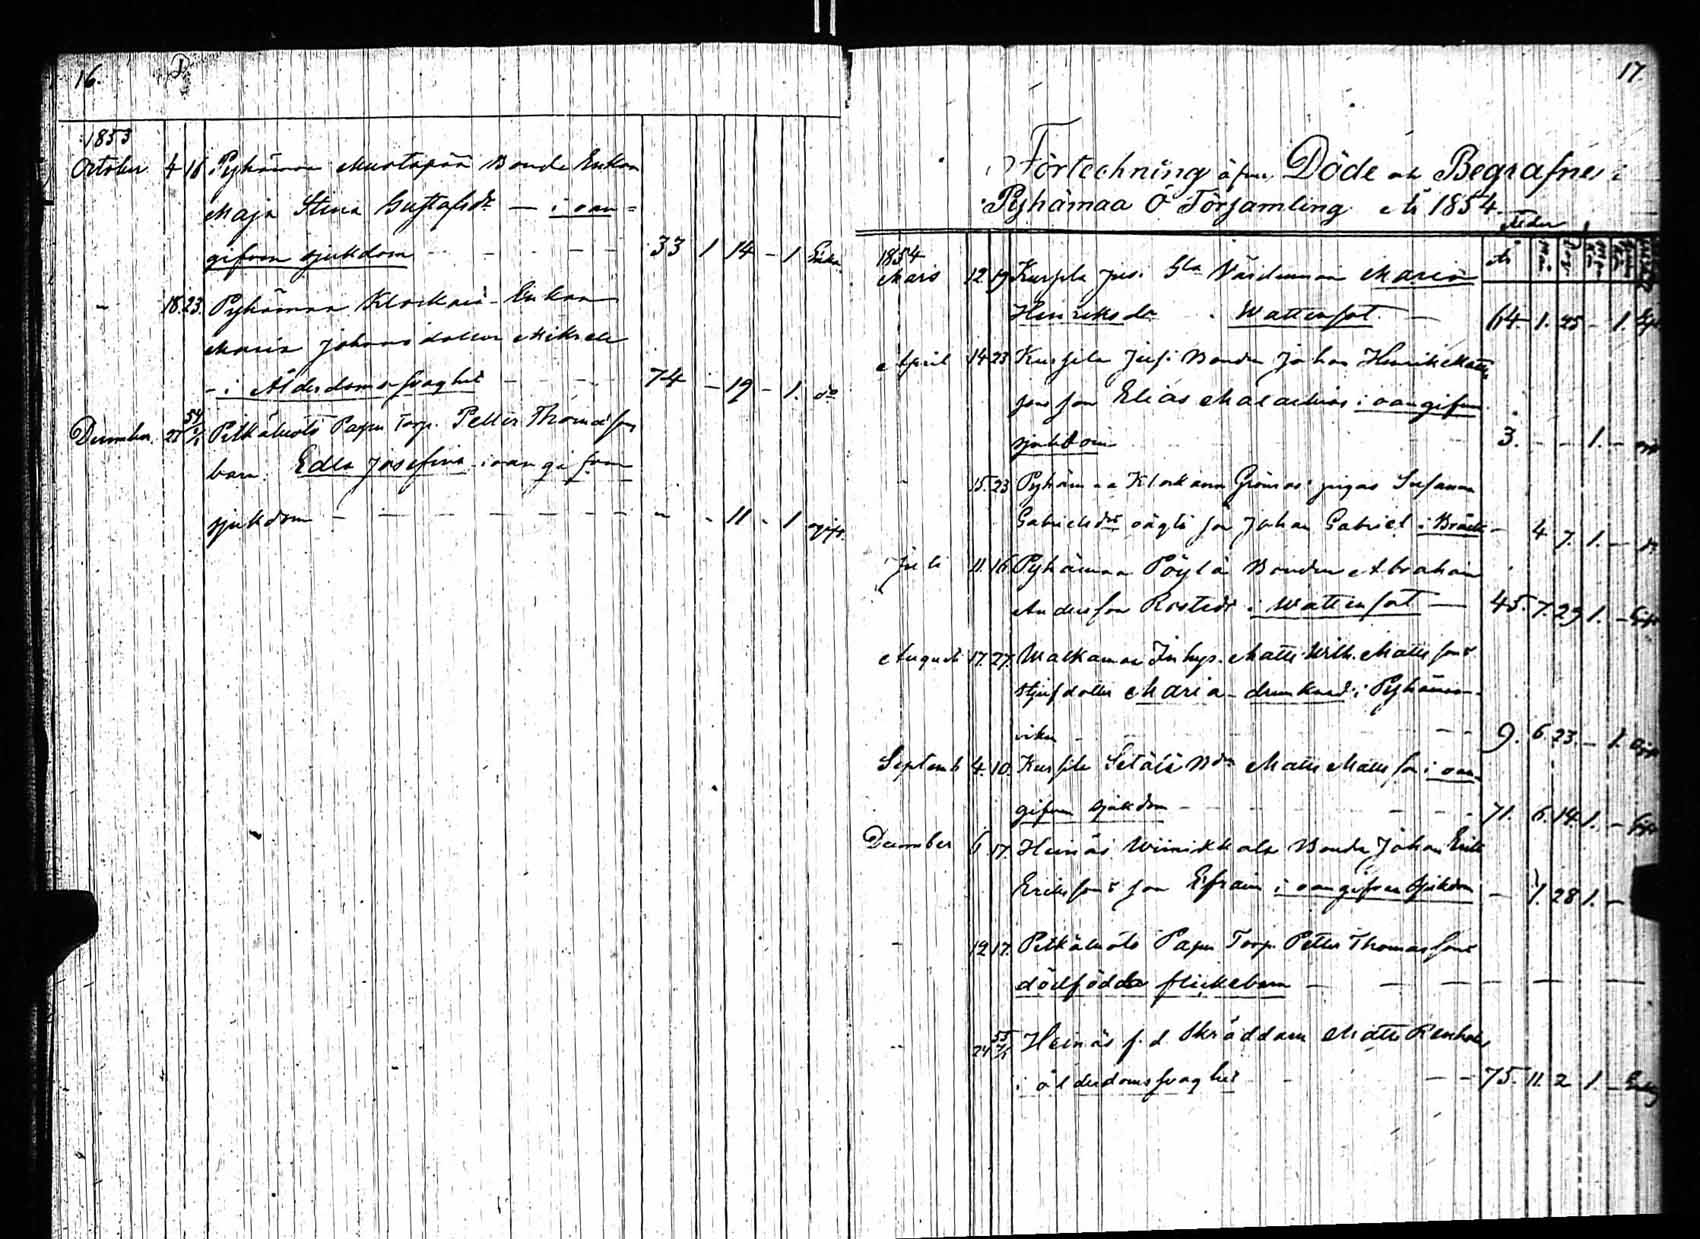 16.
1853
October 4 16 Pyhämaa Mustapää Bonde Enkan
Maja Stina Gustafsdr — i oan=
gifven sjukdom - - - 33 1 14 - 1 Enka
- 18. 23. Pyhämaa Klockars Enkan
Maria Johansdotter Mikael
- i Ålderdomssvaghet - - - 74 - 19 - 1. do
December. 27 54/1 Pitkäluoto Papu Torp. Petter Thomasson
barn. Edla Josefina i oangifven
sjukdom - - - - - - 11 - 1 ogift.
17.
Förtechning öfver Döde och Begrafne i
Pyhämaa Ö Församling År 1854.
Ålder
1854
Mars 12. 19 Kursila Jusi Gla Värdinnan Maria
Henriksdr i Wattensot — 64. 1. 25 - 1.
April 14 23 Kursila Jusi Bonden Johan Henrik Matts
sons son Elias Malakias i oangifven
sjukdom 3. - - 1. -
- 15. 23 Pyhämaa Klockars pigas Susanna
Gabrielsdrs oägta son Johan Gabriel i - 4 7. 1. -
Juli 11. 16 Pyhämaa Pöylä Bonden Abraham
Andersson Rostedt i Wattensot — 45. 7. 29 1. - Gift
Augusti 17. 27. Walkamaa Inhys. Matts Wilh. Mattssons
styfdotter Maria - drunknad i Pyhämaa
viken - - 9. 6 23. - 1. Ogift
Septemb 4. 10. Kursila Setälä Bdn Matts Mattsson i oan
gifven sjukdom - - - 71. 6. 14. 1. - Gift
December 6 17. Heinäs Winikkala Bonden Johan Erik
Erikssons son Efraim i oangifven sjukdom - 1. 28 1. -
- 12 17. Pitkäluoto Papu Torp. Petter Thomassons
dödfödda flickebarn - - - - - -
- 24 55/1 Heinäs f. d. Skräddaren Matts Renholm
i ålderdomssvaghet - - - 75. 11. 2 1. -